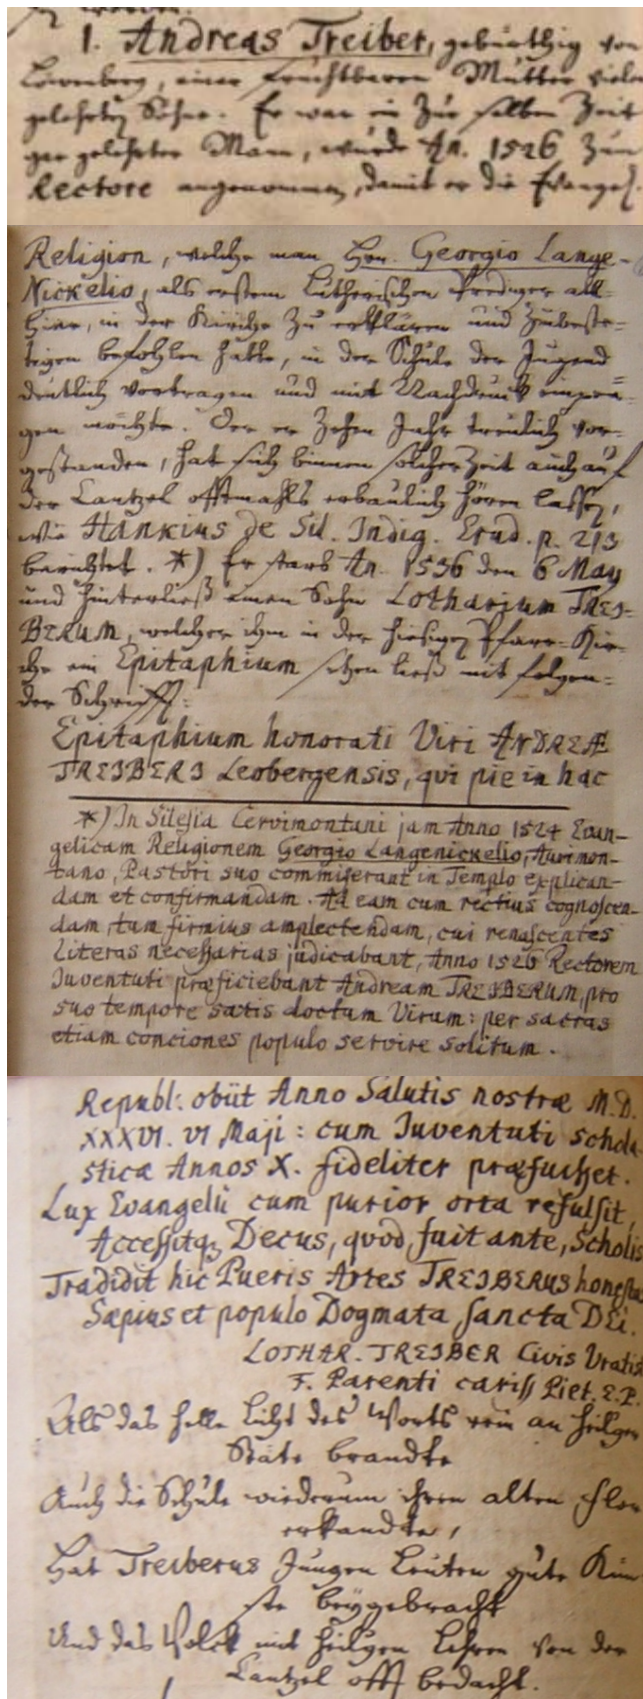 1. Andreas Treiber, gebürthig von
Löwenberg, einer fruchtbaren Mutter vieler
gelehrten Söhne. Er war ein zur selben Zeit
gar gelehrter Mann, wurde An. 1526 zum
Rectore angenommen, damit er die Evangel.
Religion, welche man Hrn. Georgio Lange-
Nickelio, als erstem Lutherischen Prediger all-
hier, in der Kirche zu erklären und zubestä-
tigen befohlen hatte, in der Schule der Jugend
deutlich vortragen und mit Nachdruck einprä-
gen möchte. Der er Zehen Jahr treulich vor-
gestanden, hat sich binnen solcher Zeit auch auf
der Cantzel offtmahls erbaulich hören lassen,
wie Hankius de Sil. Indig. Erud. p. 213
berichtet. *) Er starb An. 1536 den 6 May
und hinterließ einen Sohn Lotharium TREI-
BERUM, welcher ihm in der hiesigen Pfarr-Kir-
che ein Epitaphium setzen ließ mit folgen-
der Schrifft:
Epitaphium honorati Viri ANDREÆ
TREIBERI Leobergensis, qui pie in hac
*) In Silesia Cervimontani jam Anno 1524 Evan-
gelicam Religionem Georgio Langenickelio, Aurimon-
tano, Pastori suo commiserant in Templo explican-
dam et confirmandam. Ad eam cum rectius cognoscen-
dam, tum firmius amplectendam, cui renascentes
Literas necessarias judicabant, Anno 1526 Rectorem
Juventuti præficiebant Andream TREIBERUM, pro
suo tempore satis doctum Virum: per sacras
etiam conciones populo servire solitum.
Republ: obiit Anno Salutis nostræ M.D.
XXXVI. VI Maji: cum Juventuti schola-
sticæ Annos X. fideliter præfuisset.
Lux Evangelii cum purior orta refulsit,
Accessitq; Decus, quod fuit ante, Scholis
Tradidit hic Pueris Artes TREIBERUS honestas
Sæpius et populo Dogmata sancta DEI.
LOTHAR. TREIBER Civis Vratisl
F. Parenti cariss Piet. E. P.
Als das helle Licht des Worts rein an heilger
Stäte brandte
Auch die Schule wiederum ihren alten Flor
erkandte,
Hat Treiberus Jungen Leuten gute Kün
ste beygebracht
Und das Volck mit heilgen Lehren von der
Cantzel offt bedacht.